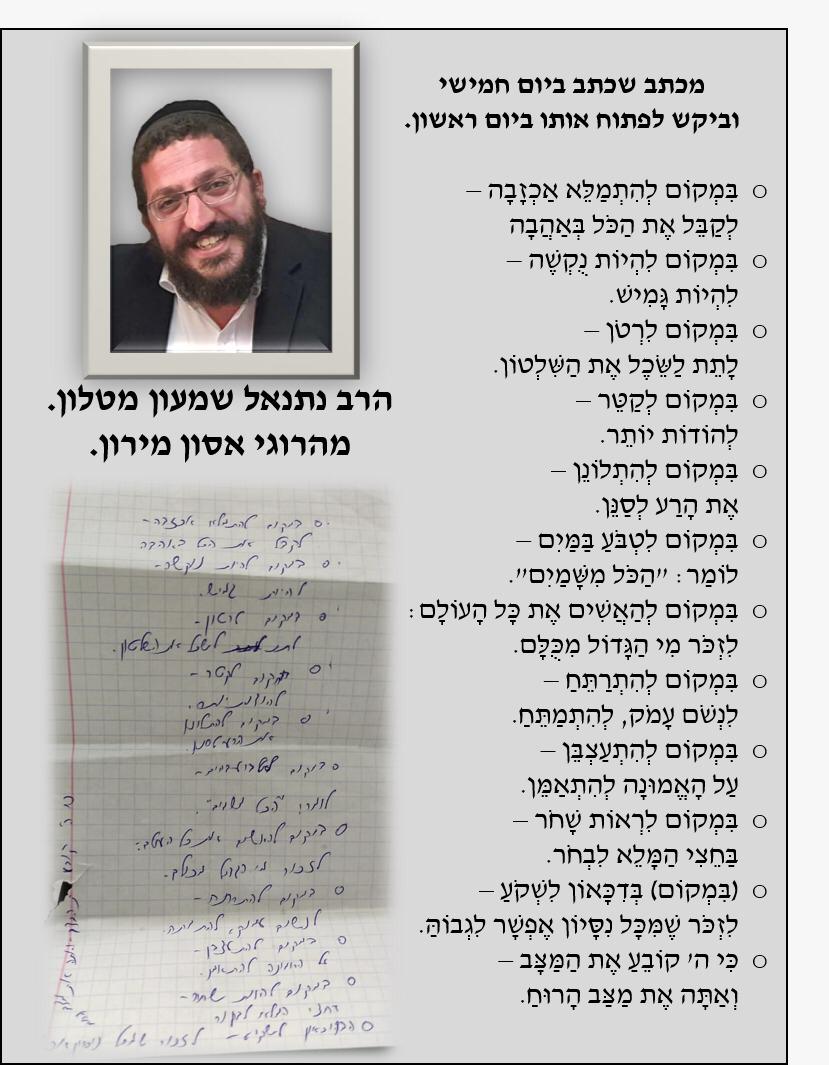 מכתב שכתב ביום חמישי
וביקש לפתוח אותו ביום ראשון.
○ בִּמְקוֹם לְהִתְמַלֵּא אַכְזָבָה –
לְקַבֵּל אֶת הַכֹּל בְּאַהֲבָה
○ בִּמְקוֹם לִהְיוֹת נֻקְשֶׁה –
לִהְיוֹת גָּמִישׁ.
○ בִּמְקוֹם לִרְטֹן –
לָתֵת לַשֵּׂכֶל אֶת הַשִּׁלְטוֹן.
○ בִּמְקוֹם לְקַטֵּר –
לְהוֹדוֹת יוֹתֵר.
○ בִּמְקוֹם לְהִתְלוֹנֵן –
אֶת הָרַע לְסַנֵּן.
○ בִּמְקוֹם לִטְבֹּעַ בַּמַּיִם –
לוֹמַר: "הַכֹּל מִשָּׁמַיִם".
○ בִּמְקוֹם לְהַאֲשִׁים אֶת כָּל הָעוֹלָם:
לִזְכֹּר מִי הַגָּדוֹל מִכֻּלָּם.
○ בִּמְקוֹם לְהִתְרַתֵּחַ –
לִנְשֹׁם עָמֹק, לְהִתְמַתֵּחַ.
○ בִּמְקוֹם לְהִתְעַצְבֵּן –
עַל הָאֱמוּנָה לְהִתְאַמֵּן.
○ בִּמְקוֹם לִרְאוֹת שָׁחֹר –
בַּחֲצִי הַמָּלֵא לִבְחֹר.
○ (בִּמְקוֹם) בְּדִכָּאוֹן לִשְׁקֹעַ –
לִזְכֹּר שֶׁמִּכָּל נִסָּיוֹן אֶפְשָׁר לִגְבּוֹהַּ.
○ כִּי ה' קוֹבֵעַ אֶת הַמַּצָּב –
וְאַתָּה אֶת מַצַּב הָרוּחַ.
הרב נתנאל שמעון מטלון.
מהרוגי אסון מירון.
○ במקום להתמלא אכזבה-
לקבל את הכל באהבה
○ במקום להיות נוקשה-
להיות גמיש.
○ במקום לרטון-
לתת לשכל את השלטון.
○ במקום לקטר -
להודות יותר.
○ במקום להתלונן
את הרע לסנן.
○ במקום לטבוע במים-
לומר: "הכל משמים".
○ במקום להאשים את כל העולם:
לזכור מי הגדול מכולם.
○ במקום להתרתח -
לנשום עמוק, להתמתח.
○ במקום להתעצבן -
על האמונה להתאמן.
○ במקום לראות שחור-
בחצי המלא לבחור